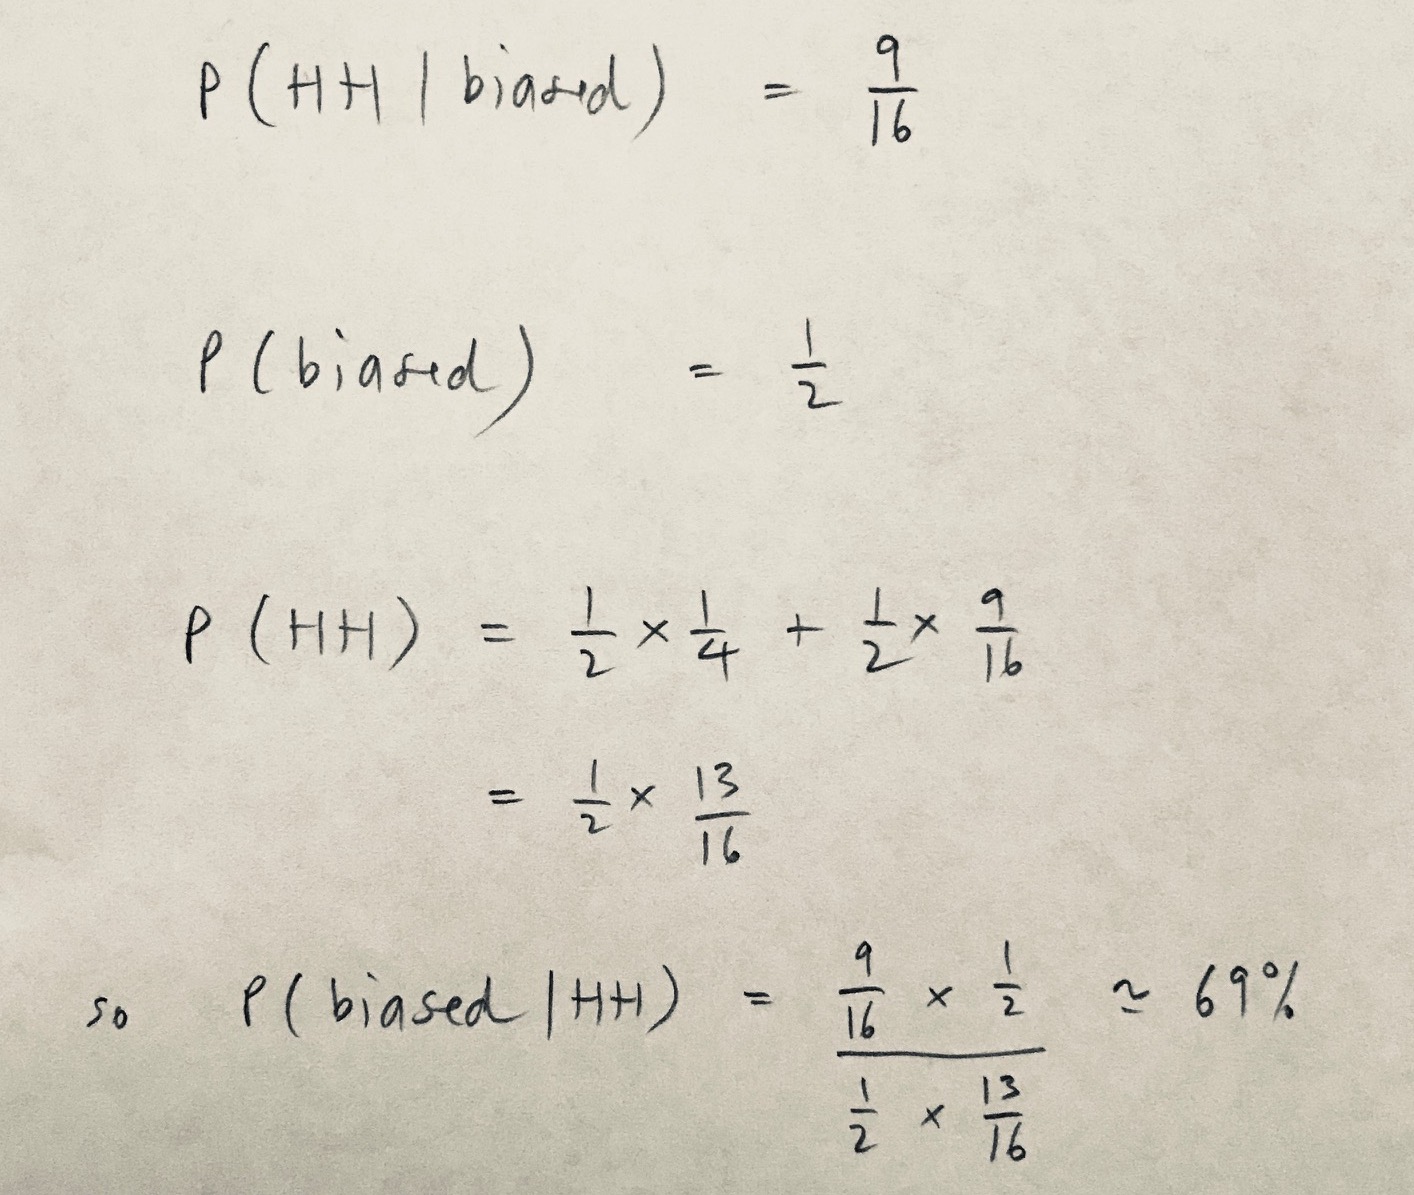 P(HH | biased) = 9/16
P(biased) = 1/2
P(HH) = 1/2 × 1/4 + 1/2 × 9/16
= 1/2 × 13/16
so P(biased | HH) = (9/16 × 1/2) / (1/2 × 13/16) ≃ 69%